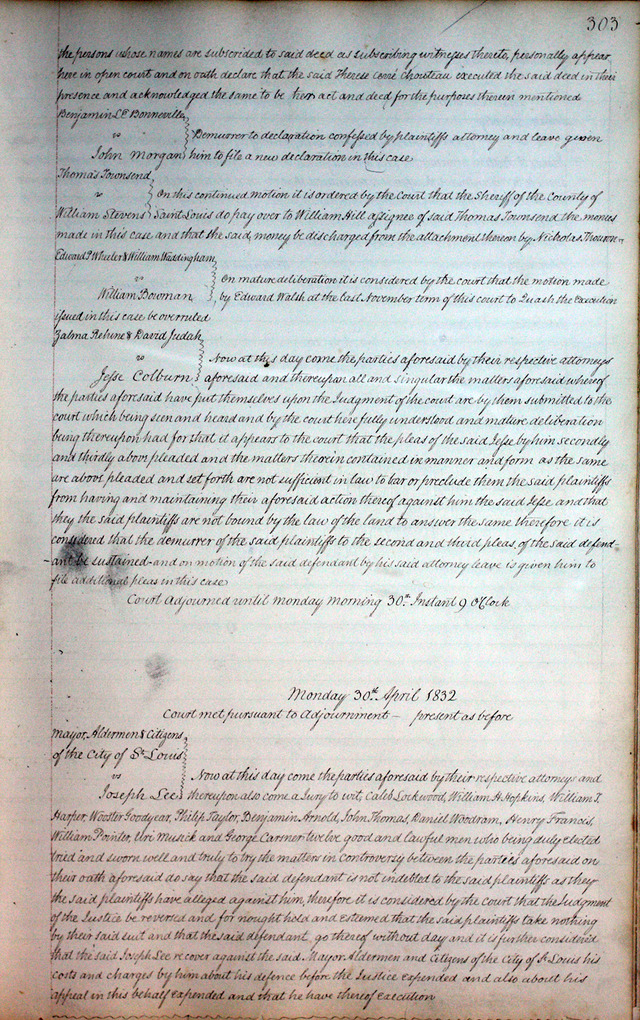 303
the persons whose names are subscribed to said deed as subscribing witnesses thereto, personally appear
here in open court and on oath declare that the said Therese Cerré Chouteau executed the said deed in their
presence and acknowledged the same to be her act and deed for the purposes therein mentioned
Benjamin L E Bonneville
vs
Demurrer to declaration confessed by plaintiffs attorney and leave given
John Morgan him to file a new declaration in this case
Thomas Townsend
vs
On this continued motion it is ordered by the Court that the Sheriff of the County of
William Stevens Saint Louis do pay over to William Hill assignee of said Thomas Townsend the monies
made in this case and that the said money be discharged from the attachment thereon by Nicholas
Edward P Wheeler & William Waddingham
vs
On mature deliberation it is considered by the court that the motion made
William Bowman by Edward Walsh at the last November term of this court to Quash the Execution
issued in this case be overruled
Zalma Rehine & David Judah
vs
Now at this day come the parties aforesaid by their respective attorneys
Jesse Colburn aforesaid and thereupon all and singular the matters aforesaid whereof
the parties aforesaid have put themselves upon the Judgment of the court are by them submitted to the
court which being seen and heard and by the court here fully understood and mature deliberation
being thereupon had for that it appears to the court that the pleas of the said Jesse by him secondly
and thirdly above pleaded and the matters therein contained in manner and form as the same
are above pleaded and set forth are not sufficient in law to bar or preclude them the said plaintiffs
from having and maintaining their aforesaid action thereof against him the said Jesse and that
they the said plaintiffs are not bound by the law of the land to answer the same therefore it is
considered that the demurrer of the said plaintiffs to the second and third pleas of the said defend-
ant be sustained and on motion of the said defendant by his said attorney leave is given him to
file additional pleas in this case
Court Adjourned until monday morning 30th Instant 9 OClock
Monday 30th April 1832
Court met pursuant to Adjournment — present as before
Mayor Aldermen & Citizens
of the City of St Louis
vs
Now at this day come the parties aforesaid by their respective attorneys and
Joseph Lee thereupon also come a Jury to wit, Caleb Lockwood, William H Hopkins, William T.
Harper Wooster Goodyear, Philip Taylor, Benjamin Arnold, John Thomas, Daniel Woodram, Henry Francis,
William Pointer, Uri Musick and George Carsner twelve good and lawful men who being duly elected
tried and sworn well and truly to try the matters in controversy between the parties aforesaid on
their oath aforesaid do say that the said defendant is not indebted to the said plaintiffs as they
the said plaintiffs have alleged against him, therefore it is considered by the court that the Judgment
of the Justice be reversed and for nought held and esteemed that the said plaintiffs take nothing
by their said suit and that the said defendant go thereof without day and it is further considered
that the said Joseph Lee recover against the said Mayor Aldermen and Citizens of the City of St Louis his
costs and charges by him about his defence before the Justice expended and also about his
appeal in this behalf expended and that he have thereof execution